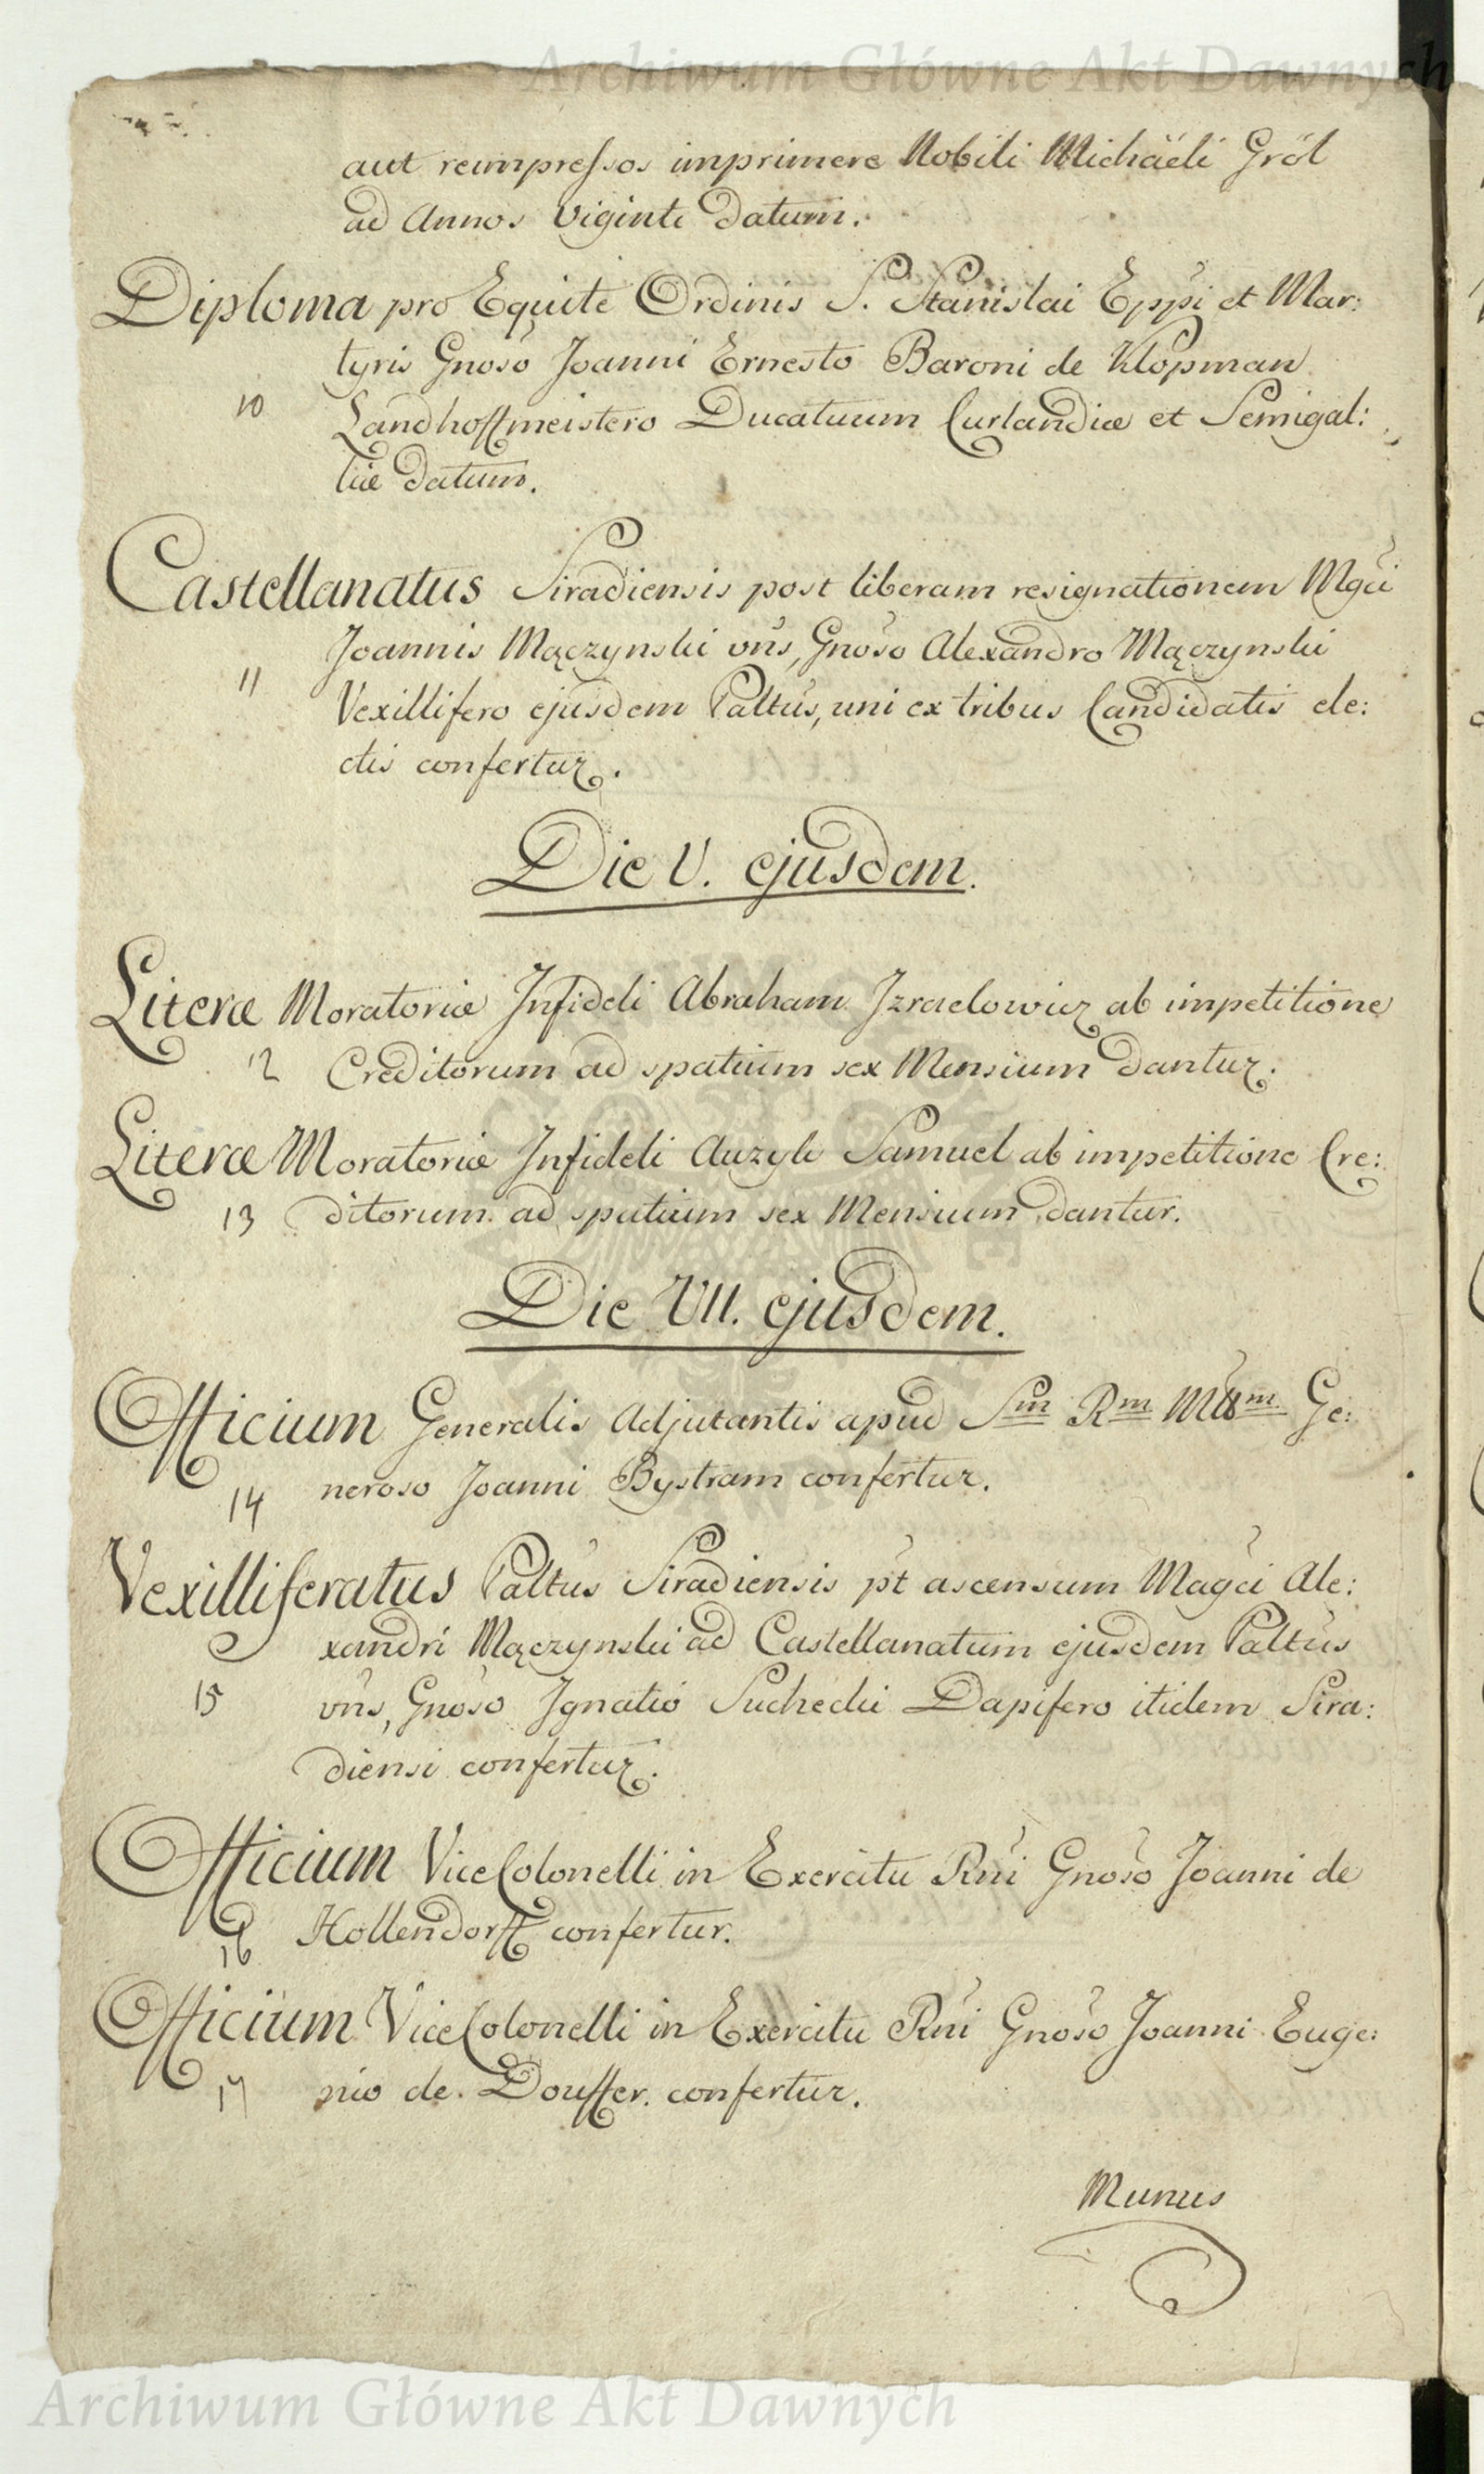 Archiwum Główne Akt Dawnych
aut reimpressos imprimere Nobili Michäeli Gröl
ad Annos viginti datum.
Diploma pro Equite Ordinis S. Stanislai Eppi et Mar:
tyris Gnoso Joanni Ernesto Baroni de Klopman
10 Landhoffmeistero Ducatuum Curlandiæ et Semigal:
liæ datum.
Castellanatus Siradiensis post liberam resignationem Mgci
Joannis Mączynski vns, Gnoso Alexandro Mączynski
11 Vexillifero ejusdem Paltus, uni ex tribus Candidatis ele:
ctis confertur.
Die V. ejusdem.
Literæ Moratoriæ Infideli Abraham Izraelowicz ab impetitione
12 Creditorum ad spatium sex Mensium dantur.
Literæ Moratoriæ Infideli Auzyk Samuel ab impetitione Cre:
13 ditorum ad spatium sex Mensium dantur.
Die VII. ejusdem.
Officium Generalis Adjutantis apud Sm Rm Mttm Ge:
14 neroso Joanni Bystram confertur.
Vexilliferatus Paltus Siradiensis pt ascensum Magci Ale:
xandri Mączynski ad Castellanatum ejusdem Paltus
15 vns, Gnoso Ignatio Suchecki Dapifero itidem Sira:
diensi confertur.
Officium ViceColonelli in Exercitu Rni Gnoso Joanni de
16 Hollendorff confertur.
Officium ViceColonelli in Exercitu Rni Gnoso Joanni Euge:
17 nio de Douffer. confertur.
Munus
Archiwum Główne Akt Dawnych